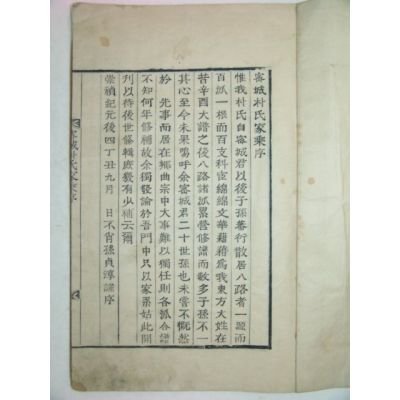 密城朴氏家乘序
惟我朴氏自密城君以後子孫蕃衍散居八路者一題而
百派一根而百支科宦綿綿文華籍籍爲我東方大姓在
昔辛酉大譜之後八路諸派累營修譜而敏多子孫不一
其心至今未果嗚呼余密城君二十世孫也未嘗不慨然
於先事而居在鄕曲宗中大事難以獨任則各派合
不知何年修補故余獨發論於吾門中只以家累姑此開
刊以待後世修輯庶幾有少補云爾
崇禎紀元後四丁丑九月 日不肖孫貞淳謹序
密城朴氏家乘序